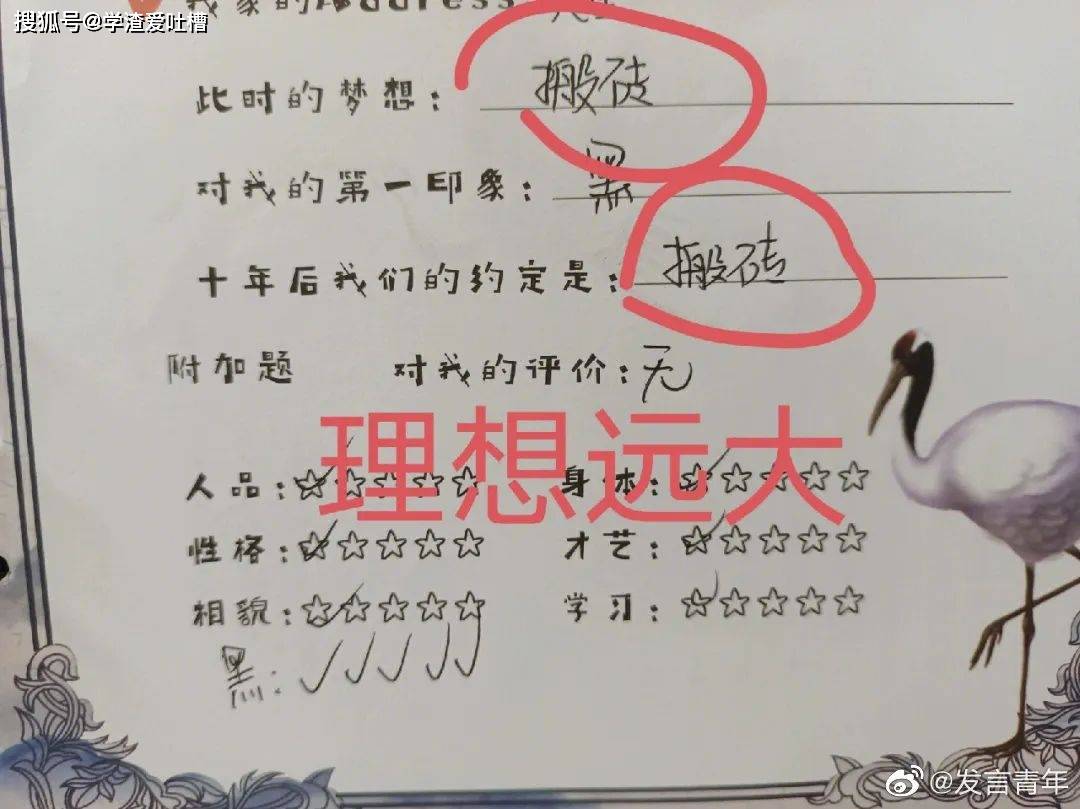 搜狐号@学渣爱吐槽
我家的Address
此时的梦想：搬砖
对我的第一印象：黑
十年后我们的约定是：搬砖
附加题 对我的评价：无
理想远大
人品：☆☆☆☆☆ 身体：☆☆☆☆☆
性格：☆☆☆☆☆ 才艺：☆☆☆☆☆
相貌：☆☆☆☆☆ 学习：☆☆☆☆☆
黑：✓✓✓✓✓
@发言青年